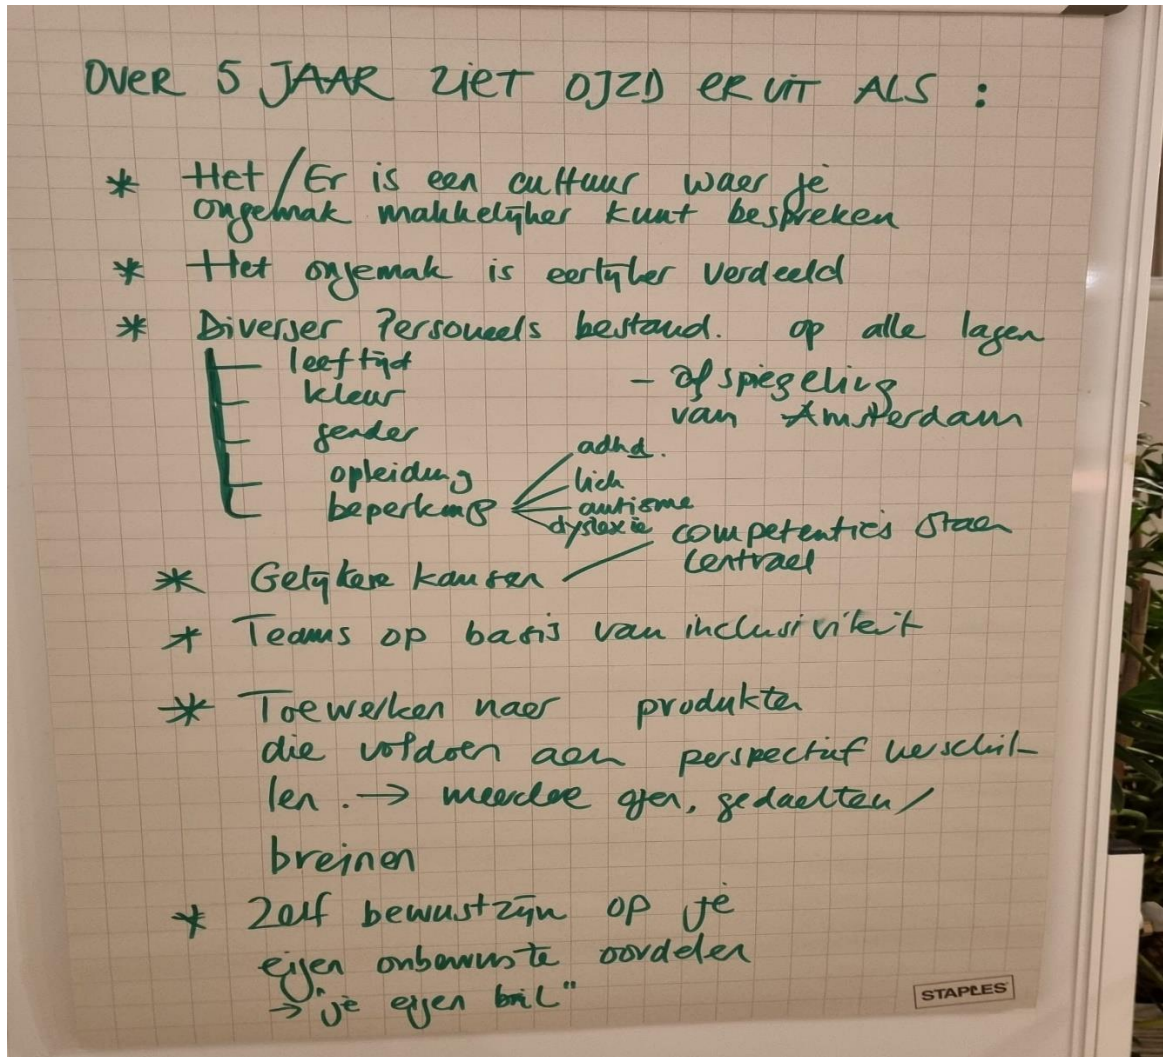 OVER 5 JAAR ZIET OJZD ER UIT ALS :
* Het/Er is een cultuur waar je
ongemak makkelijker kunt bespreken
* Het ongemak is eerlijker verdeeld
* Diverser Personeels bestand. op alle lagen
leeftijd
kleur
gender
opleiding
beperking
- afspiegeling
van Amsterdam
adhd.
lich
autisme
dyslexie
* Gelijkere kansen
competenties staan
centraal
* Teams op basis van inclusiviteit
* Toewerken naar produkten
die voldoen aan perspectief verschil-
len. → meerdere ogen, gedachten/
breinen
* Zelf bewustzijn op je
eigen onbewuste oordelen
→ "je eigen bril"
STAPLES